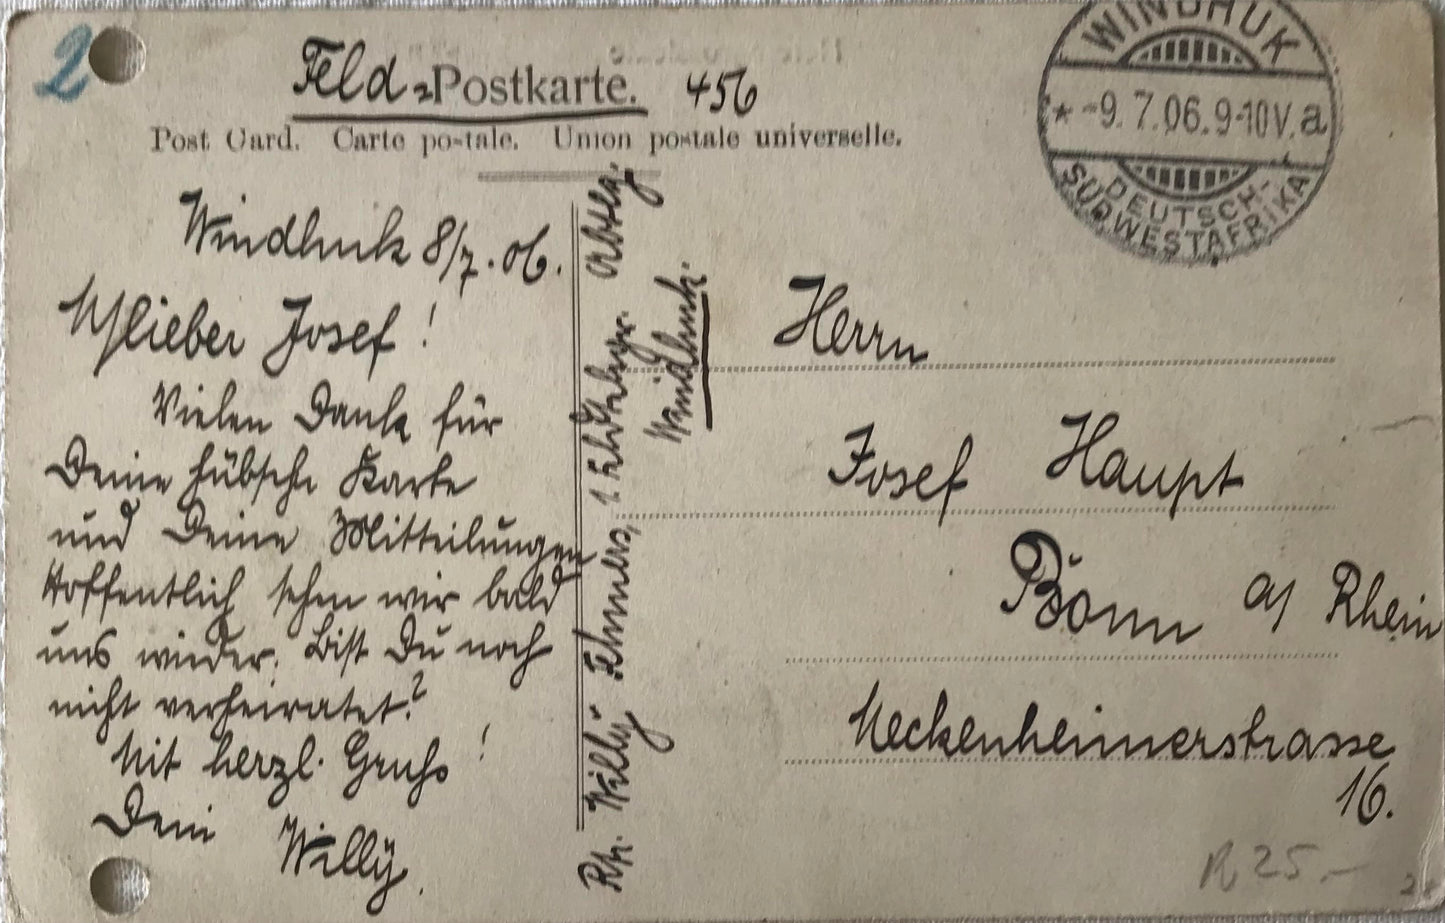 2
Feld-Postkarte. 456
Post Card. Carte postale. Union postale universelle.
WINDHUK
* -9.7.06.9-10V. a
DEUTSCH-
SÜDWESTAFRIKA
Windhuk 8/7.06.
Mlieber Josef!
Vielen Dank für
Deine hübsche Karte
und Deine Mitteilungen
Hoffentlich sehen wir bald
uns wieder. Bist Du noch
nicht verheiratet?
Mit herzl. Gruß!
Dein Willÿ.
Willÿ 1. Abteilg.
Windhuk.
Herrn
Josef Haupt
Bonn a/ Rhein
Meckenheimerstrasse
16.
R 25.-